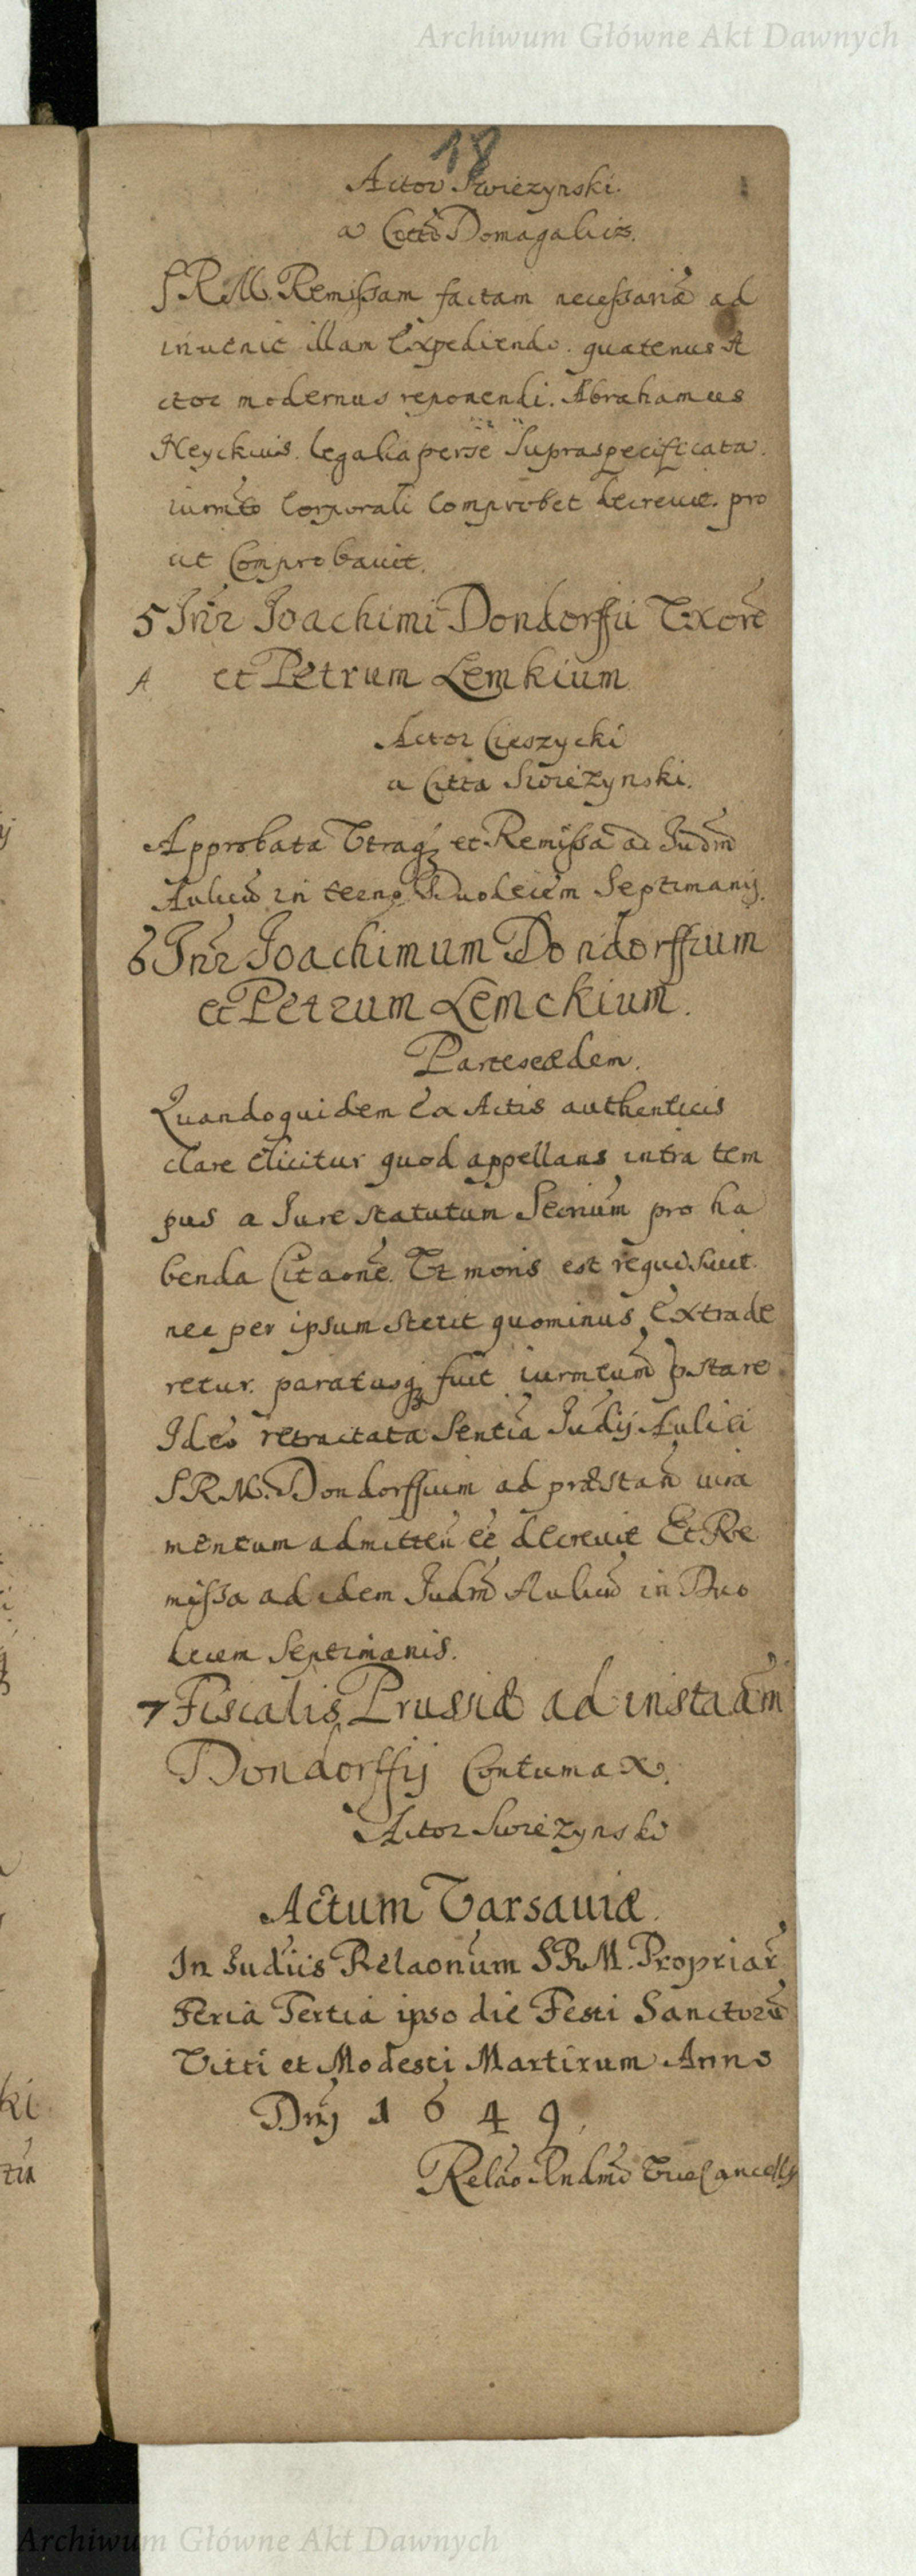 Archiwum Główne Akt Dawnych
18
Actor Swieżynski.
a Citto Domagalicz.
S R. M. Remissam factam necessariã ad
invenit illam Expediendo. quatenus A
ctor modernus reponendi. Abrahamus
Heyckius. legalia per se supraspecificata.
iurmto Corporali Comprobet decrevit. pro
ut Comprobavit.
5 Intr Joachimi Dondorffii Vxore
A et Petrum Lemkium
Actor Cieszycki
a Citta Swieżynski.
Approbata Vtraq; et Remissa ad Judm
Aulicũ in termo Duodecim Septimanis.
6 Intr Joachimum Dondorffium
et Petrum Lemckium.
Partes eædem.
Quandoquidem Ex Actis authenticis
clare elicitur quod appellans intra tem
pus a Jure statutum Scrinium pro ha
benda Citaone. Vt moris est requisivit.
nec per ipsum stetit quominus Extrade
retur. paratusq; fuit iurmtum pstare
Ideo retractata Sentia Judij Aulici
S R M. Dondorffium ad præstan iura
mentum admitten eê decrevit Et Re
missa ad idem Judm Aulicũ in Duo
decem Septimanis.
7 Fiscalis Prussiæ ad instaãm
Dondorffij Contumax.
Actor Swieżynski
Actum Varsaviæ.
In Judiis Relaonum S R. M. Propriar
Feria Tertia ipso die Festi Sanctorũ
Vitti et Modesti Martirum Anno
Dnj 1649.
Relao Rndmi Vicecancellij
Archiwum Główne Akt Dawnych